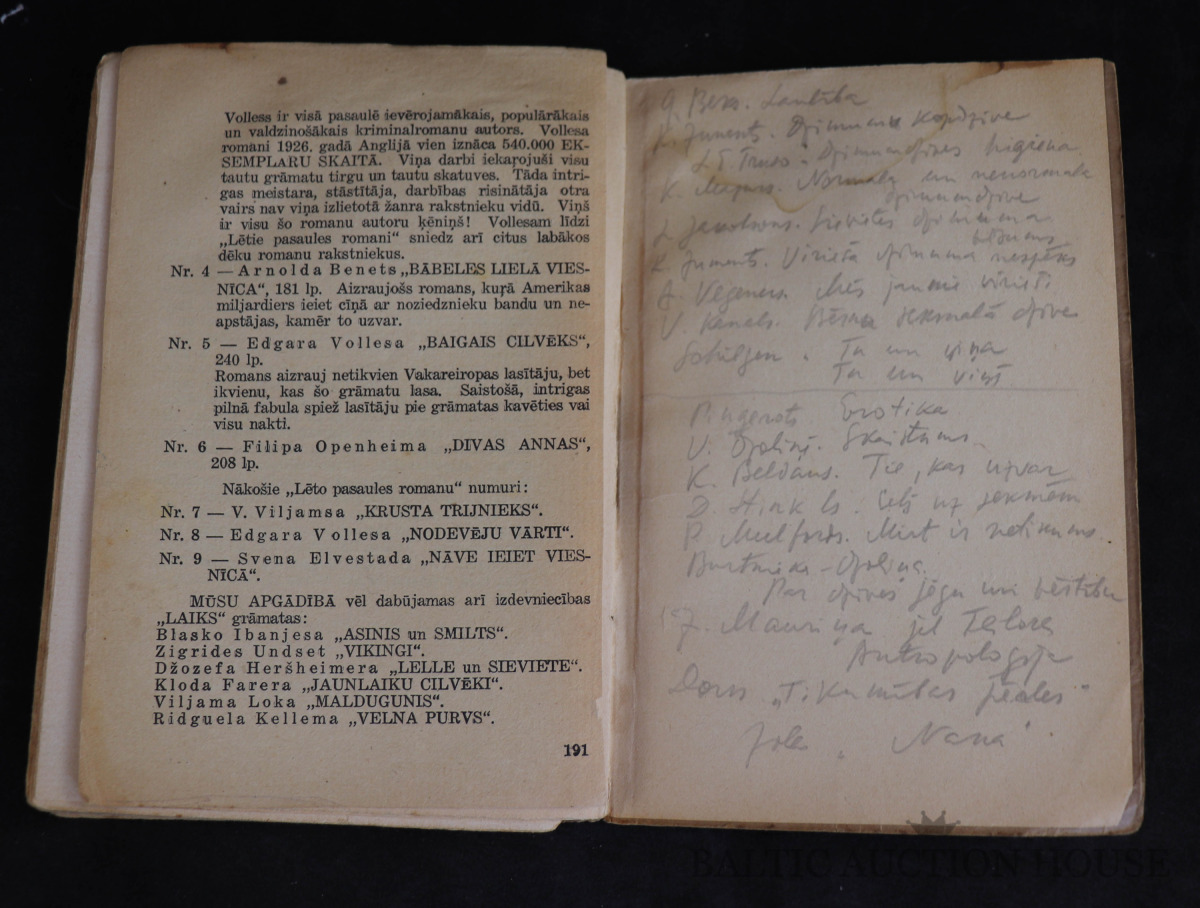 Volless ir visā pasaulē ievērojamākais, populārākais
un valdzinošākais kriminalromanu autors. Vollesa
romani 1926. gadā Anglijā vien iznāca 540.000 EK-
SEMPLARU SKAITĀ. Viņa darbi iekaŗojuši visu
tautu grāmatu tirgu un tautu skatuves. Tāda intri-
gas meistara, stāstītāja, darbības risinātāja otra
vairs nav viņa izlietotā žanra rakstnieku vidū. Viņš
ir visu šo romanu autoru ķēniņš! Vollesam līdzi
„Lētie pasaules romani“ sniedz arī citus labākos
dēku romanu rakstniekus.
Nr. 4 — Arnolda Benets „BABELES LIELĀ VIES-
NĪCA“, 181 lp. Aizraujošs romans, kuŗā Amerikas
miljardiers ieiet cīņā ar noziedznieku bandu un ne-
apstājas, kamēr to uzvar.
Nr. 5 — Edgara Vollesa „BAIGAIS CILVĒKS“,
240 lp.
Romans aizrauj netikvien Vakareiropas lasītāju, bet
ikvienu, kas šo grāmatu lasa. Saistošā, intrigas
pilnā fabula spiež lasītāju pie grāmatas kavēties vai
visu nakti.
Nr. 6 — Filipa Openheima „DIVAS ANNAS“,
208 lp.
Nākošie „Lēto pasaules romanu“ numuri:
Nr. 7 — V. Viljamsa „KRUSTA TRIJNIEKS“.
Nr. 8 — Edgara Vollesa „NODEVĒJU VĀRTI“.
Nr. 9 — Svena Elvestada „NĀVE IEIET VIES-
NĪCĀ“.
MŪSU APGĀDĪBĀ vēl dabūjamas arī izdevniecības
„LAIKS“ grāmatas:
Blasko Ibanjesa „ASINIS un SMILTS“.
Zigrides Undset „VIKINGI“.
Džozefa Heršheimera „LELLE un SIEVIETE“.
Kloda Farera „JAUNLAIKU CILVĒKI“.
Viljama Loka „MALDUGUNIS“.
Ridguela Kellema „VELNA PURVS“.
191
Laulība
Dzimumu kopdzīve
Dzimumdzīves higiena
K. Normala un nenormala
dzimumdzīve
Sievietes dzimuma
Vīrieša dzimuma nespēks
Mēs jaunie vīrieši
V. Bērnu seksualā dzīve
Ta un viņa
Ta un viņš
Erotika
V. Ozoliņš. Skaistums
K. Beldavs. Tie, kas uzvar
D. Ceļš uz sekmēm
P. Mulfords. Mirt ir netikums.
Par dzīves jēgu un vērtību
Z. Mauriņa
Antropologija
„Tikumības
„Nana“.
BALTIC AUCTION HOUSE